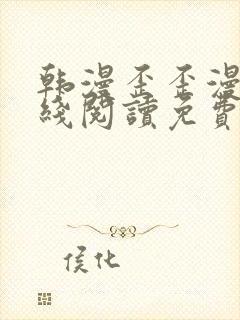 韩漫歪歪漫
线阅读免费
侯化